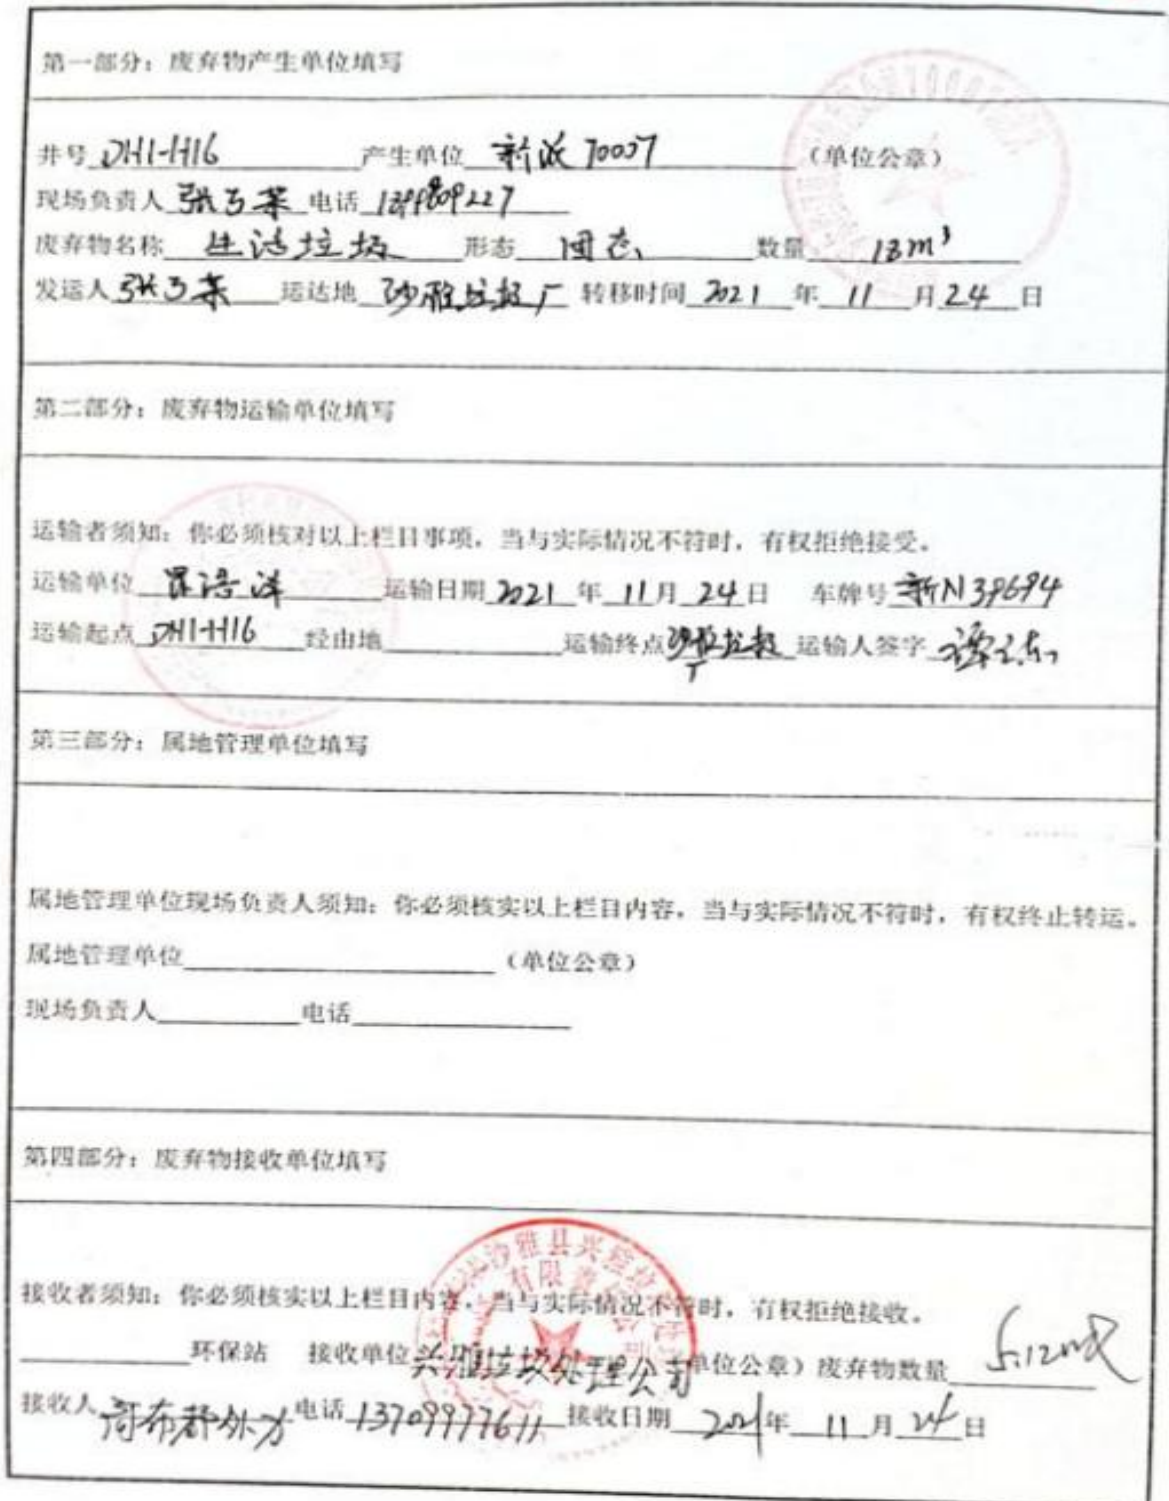 第一部分：废弃物产生单位填写
井号 DH1-H16 产生单位 新派70007 （单位公章）
现场负责人 张 电话
废弃物名称 生活垃圾 形态 固态 数量 18m³
发运人 张 运达地 沙雅垃圾厂 转移时间 2021 年 11 月 24 日
第二部分：废弃物运输单位填写
运输者须知：你必须核对以上栏目事项，当与实际情况不符时，有权拒绝接受。
运输单位 运输日期 2021 年 11 月 24 日 车牌号 新N39694
运输起点 DH1-H16 经由地 运输终点 沙雅垃圾厂 运输人签字
第三部分：属地管理单位填写
属地管理单位现场负责人须知：你必须核实以上栏目内容，当与实际情况不符时，有权终止转运。
属地管理单位 （单位公章）
现场负责人 电话
第四部分：废弃物接收单位填写
沙雅县兴雅垃圾处理
有限责任公司
接收者须知：你必须核实以上栏目内容，当与实际情况不符时，有权拒绝接收。
环保站 接收单位 兴雅垃圾处理公司 （单位公章）废弃物数量 5.12
接收人 电话 13709977611 接收日期 2021 年 11 月 24 日